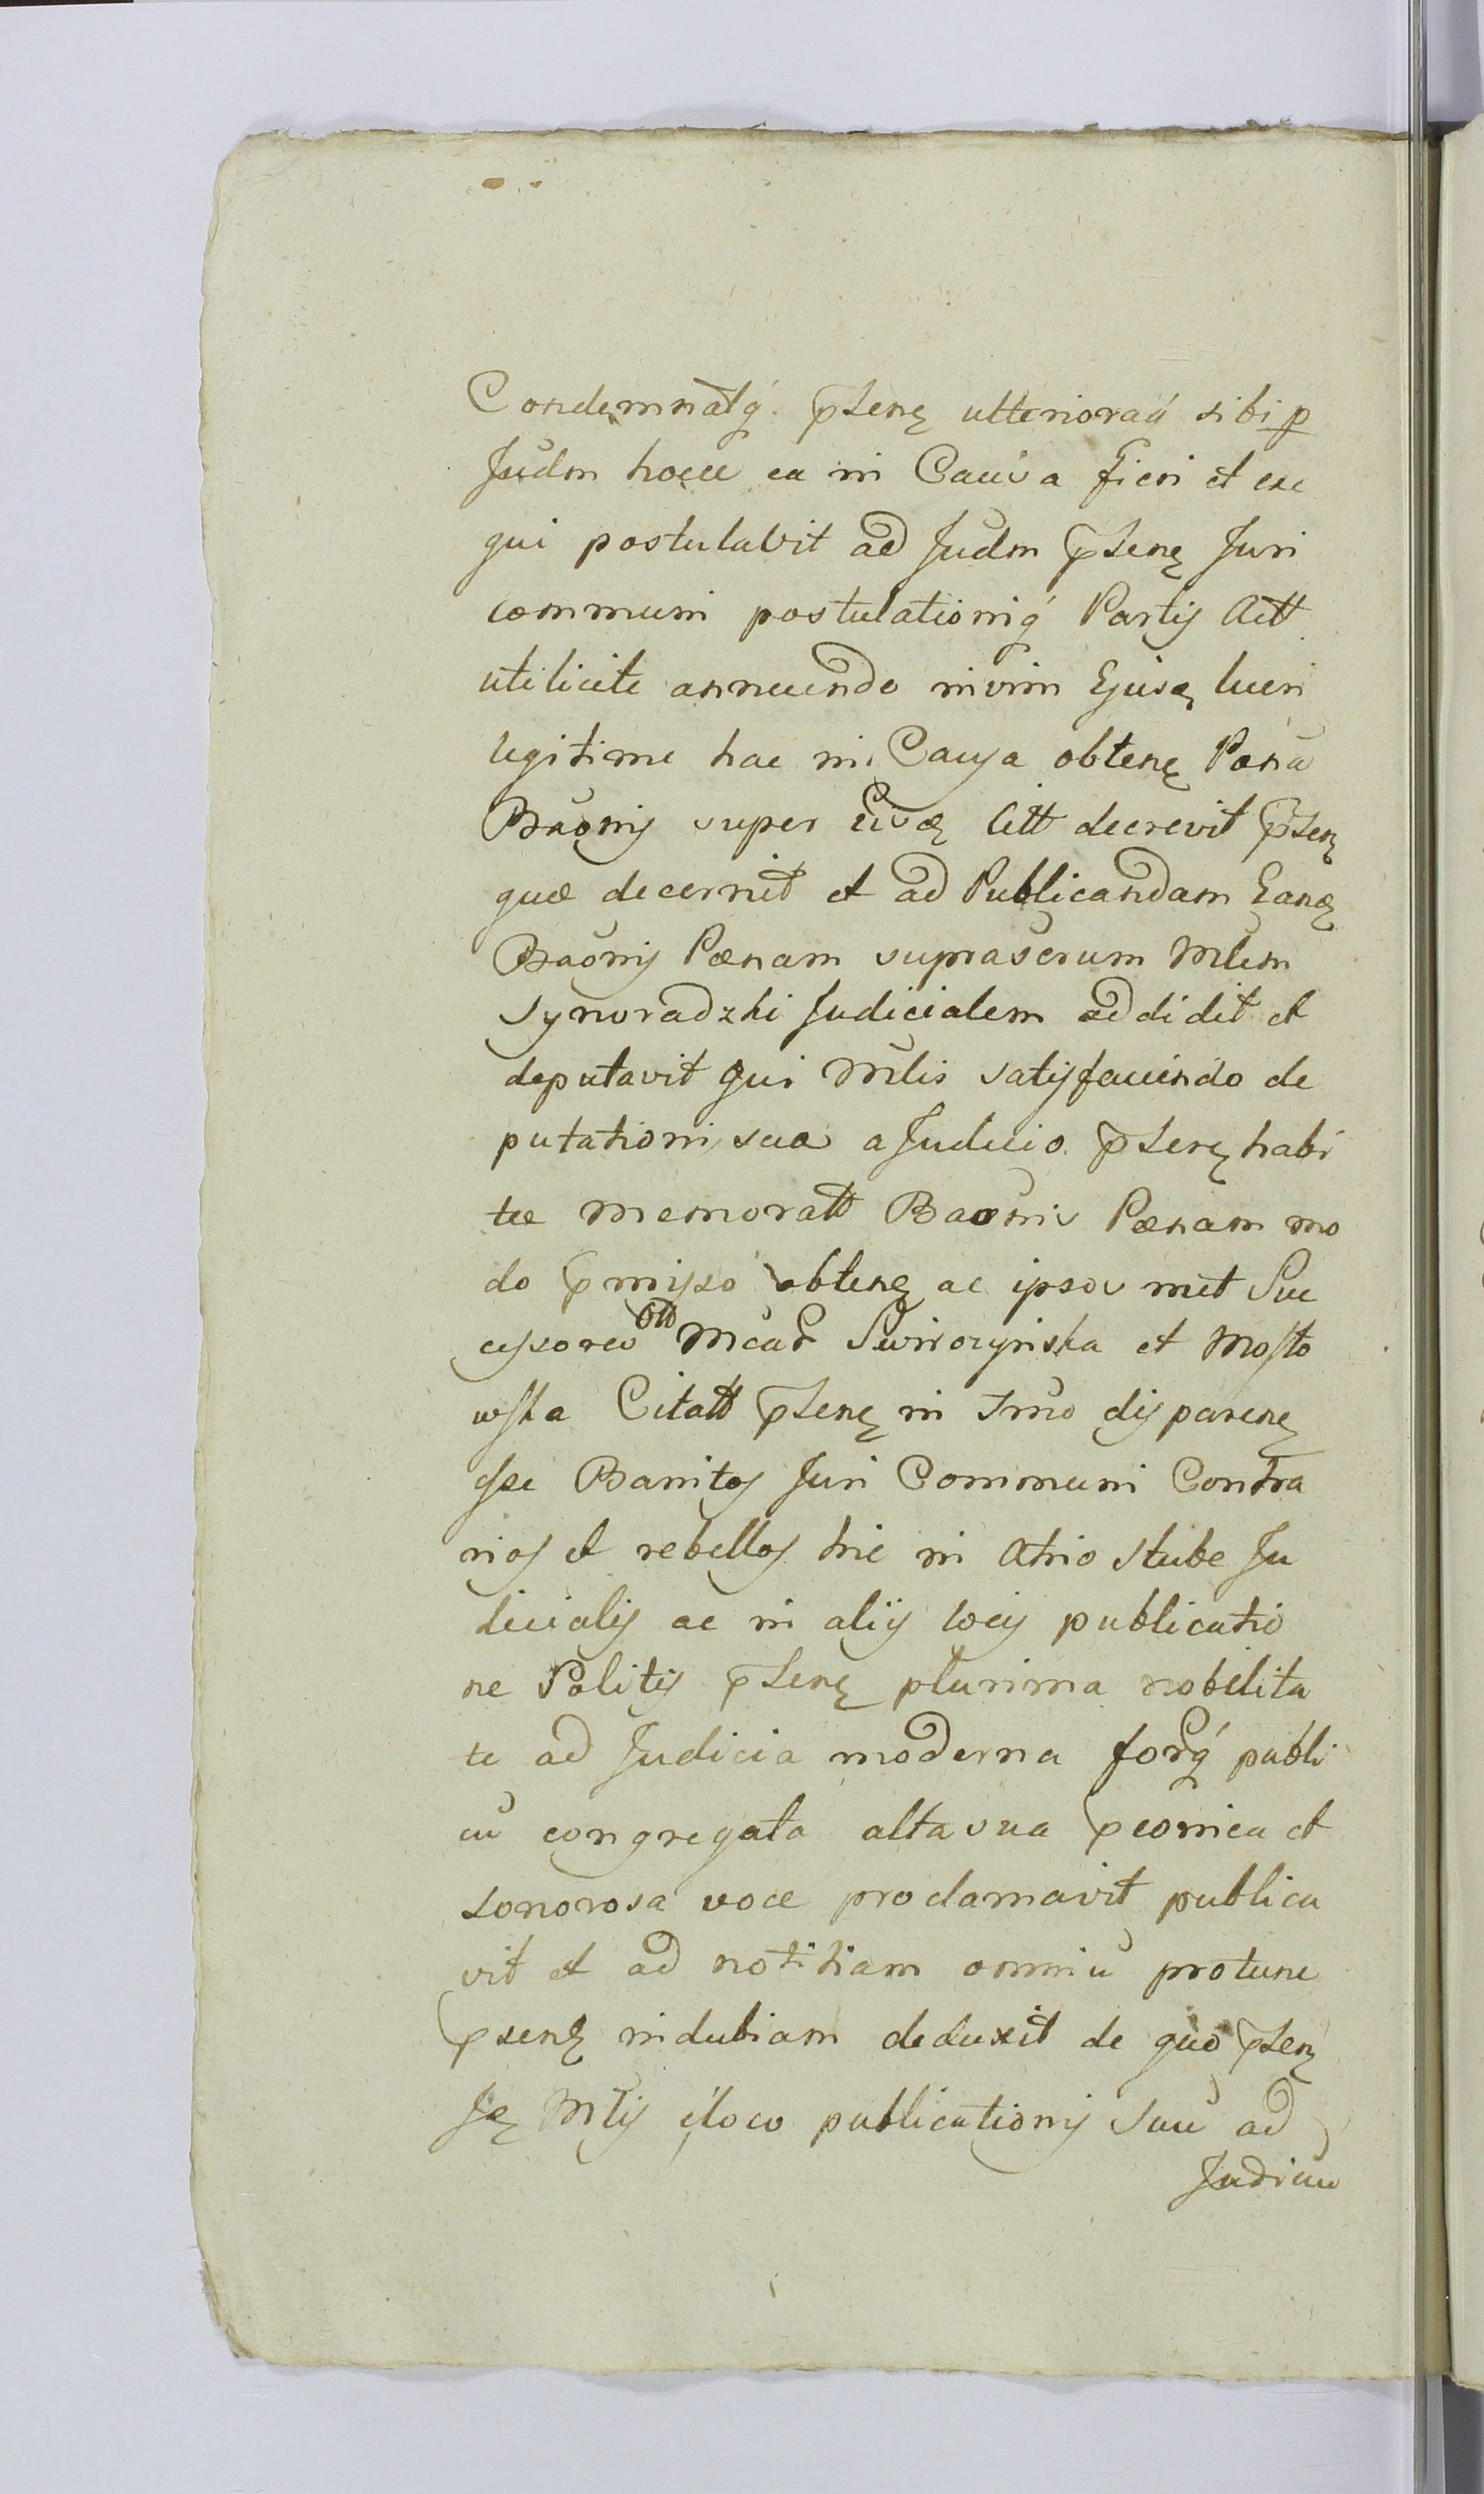 Condemnatq́. p̃senę ulterioraq́ sibi p
Judm hocce ea in Causa fieri et exe
qui postulavit ad Judm p̃senę Juri
communi postulationiq́ Partis Actt
utilicite annuendo invim Ejusę lucri
legitime hac in Causa obtenę Pœnã
Bãonis super Eisdę Citt decrevit p̃senę
quæ decernit et ad Publicandam Eandę
Bãonis Pœnam suprascrum Mlem
Synoradzki Judicialem addidit et
deputavit qui Mlis satisfaciendo de
putationi suæ a Judicio p̃senę habi
tæ memoratt Baonis Pœnam mo
do p̃misso obtenę ac ipsos met Suc
cessores Ott Mcar Swinczynska et Mosto
wska Citatt p̃senę in Tmo disparenę
esse Bannitos Juri Communi Contra
rios et rebelles hic in Atrio Stube Ju
dicialis ac in aliis locis publicatio
ne Politis p̃senę plurima nobilita
te ad Judicia moderna forq́ publi
cũ congregata alta sua p̃conica et
sonorosa voce proclamavit publica
vit et ad notitiam omniũ protunc
p̃senę indubiam deduxit de quo p̃senę
Ję Mlis é loco publicationis suũ ad
Judiciũ